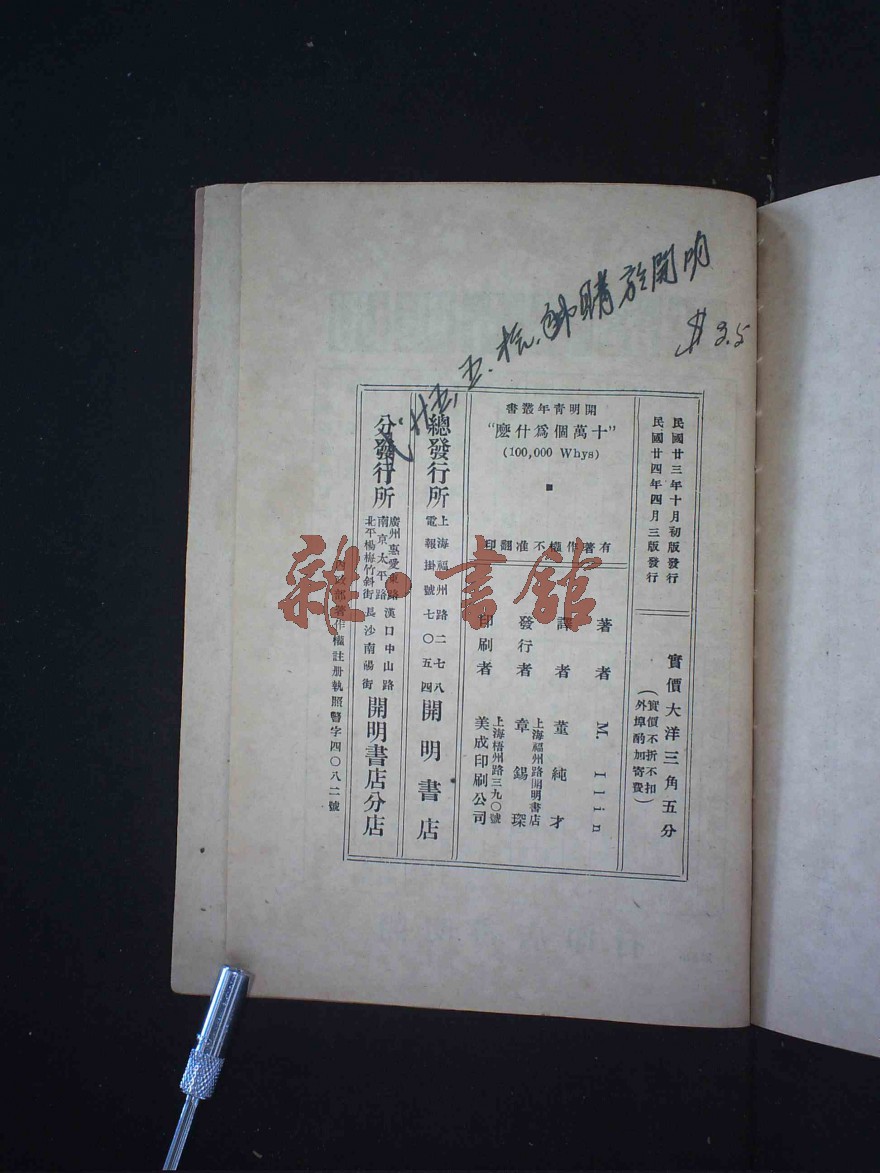 購於開明
$ 3.5
民國廿三年十月初版發行
民國廿四年四月三版發行
實價大洋三角五分
（實價不折不扣
外埠酌加寄費）
書叢年青明開
“麽什爲個萬十”
(100,000 Whys)
印翻准不權作著有
著者 M. Ilin
譯者 董純才
發行者 上海福州路開明書店
章錫琛
印刷者 上海梧州路三九〇號
美成印刷公司
總發行所 上海福州路二七八
電報掛號七〇五四 開明書店
分發行所 廣州惠愛東路 漢口中山路
南京太平路
北平楊梅竹斜街 長沙南陽街 開明書店分店
內政部著作權註册執照警字四〇八二號
雜·書館